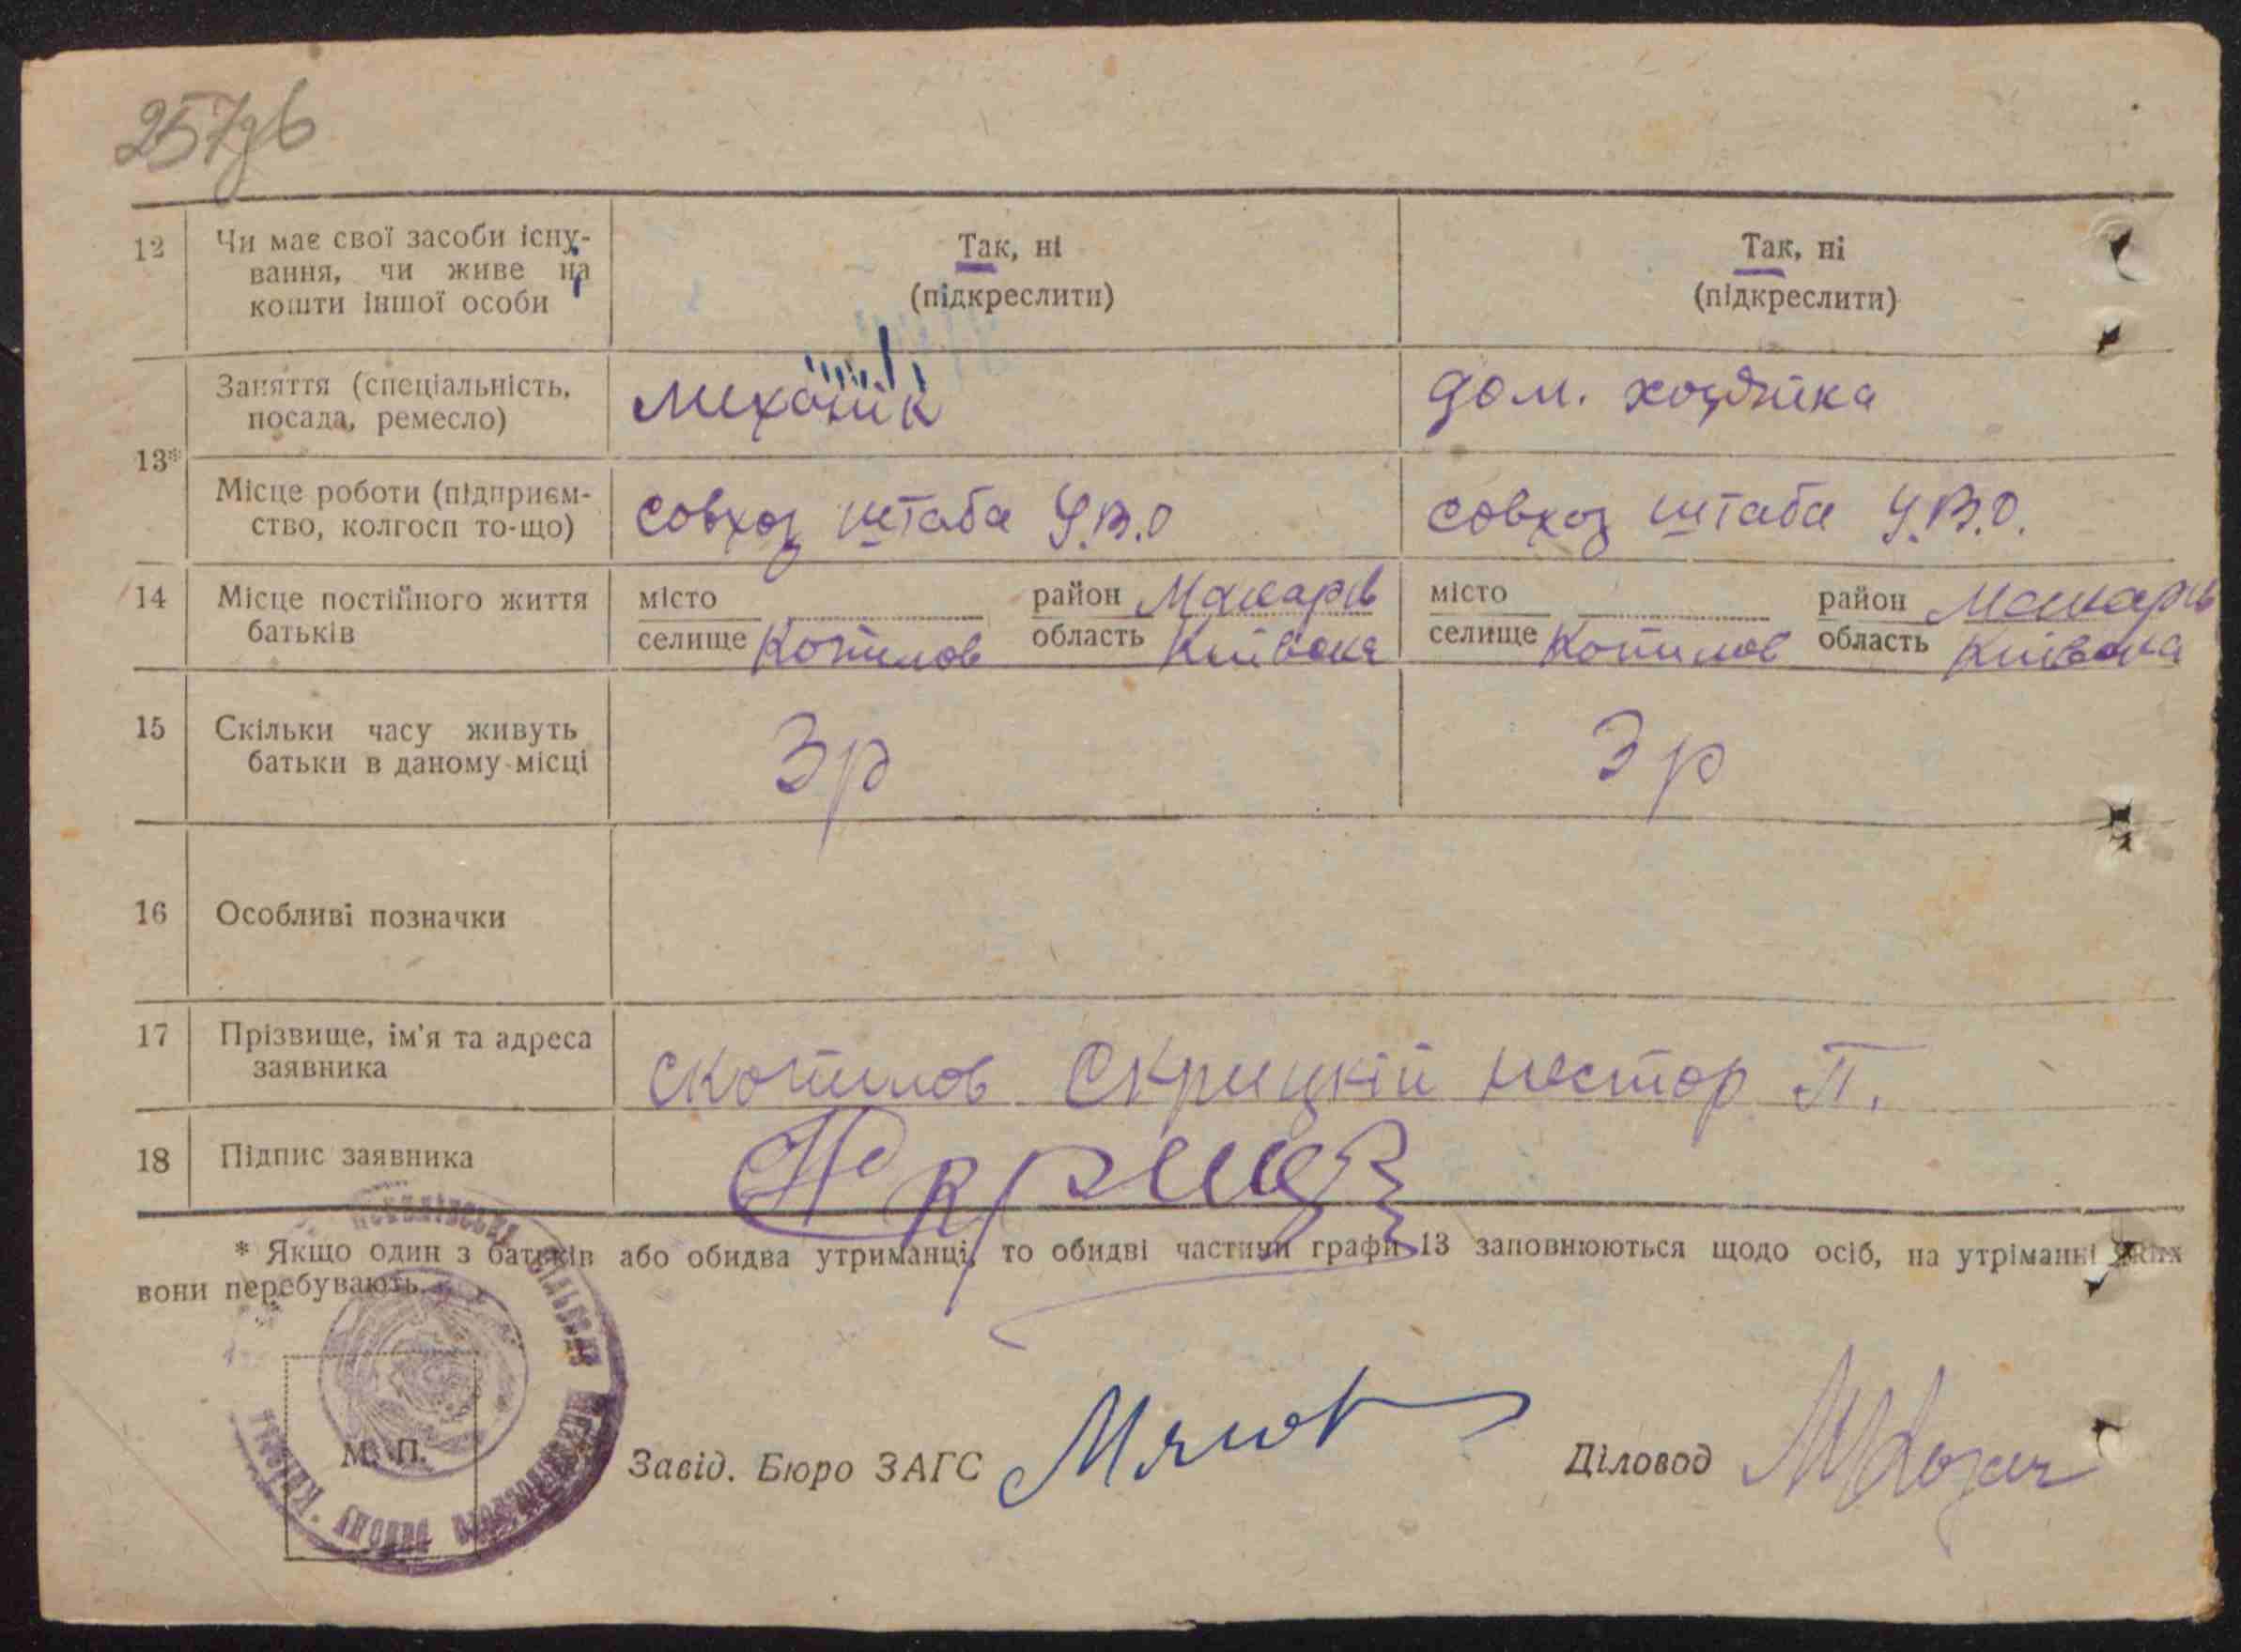 257зв
12 Чи має свої засоби існу-
вання, чи живе на
кошти іншої особи
Так, ні
(підкреслити)
Так, ні
(підкреслити)
13*
Заняття (спеціальність,
посада, ремесло)
механік
дом. хозяйка
Місце роботи (підприєм-
ство, колгосп то-що)
совхоз штаба У.В.О
совхоз штаба У.В.О.
14 Місце постійного життя
батьків
місто район Макарів
селище Копилов область Київська
місто район Макарів
селище Копилов область Київська
15 Скільки часу живуть
батьки в даному місці
3 р
3 р
16 Особливі позначки
17 Прізвище, ім'я та адреса
заявника
с Копилов Скрицкій Нестор П.
18 Підпис заявника
* Якщо один з батьків або обидва утриманці, то обидві частини графи 13 заповнюються щодо осіб, на утріманні яких
вони перебувають.
М. П.
Завід. Бюро ЗАГС
Діловод